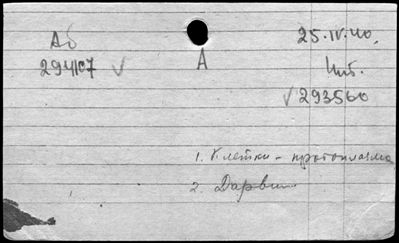 Аб
294107 ✓
А
25.IV.40.
Инб.
✓ 293560
1. Клетки - протоплазма
2. Дарвин